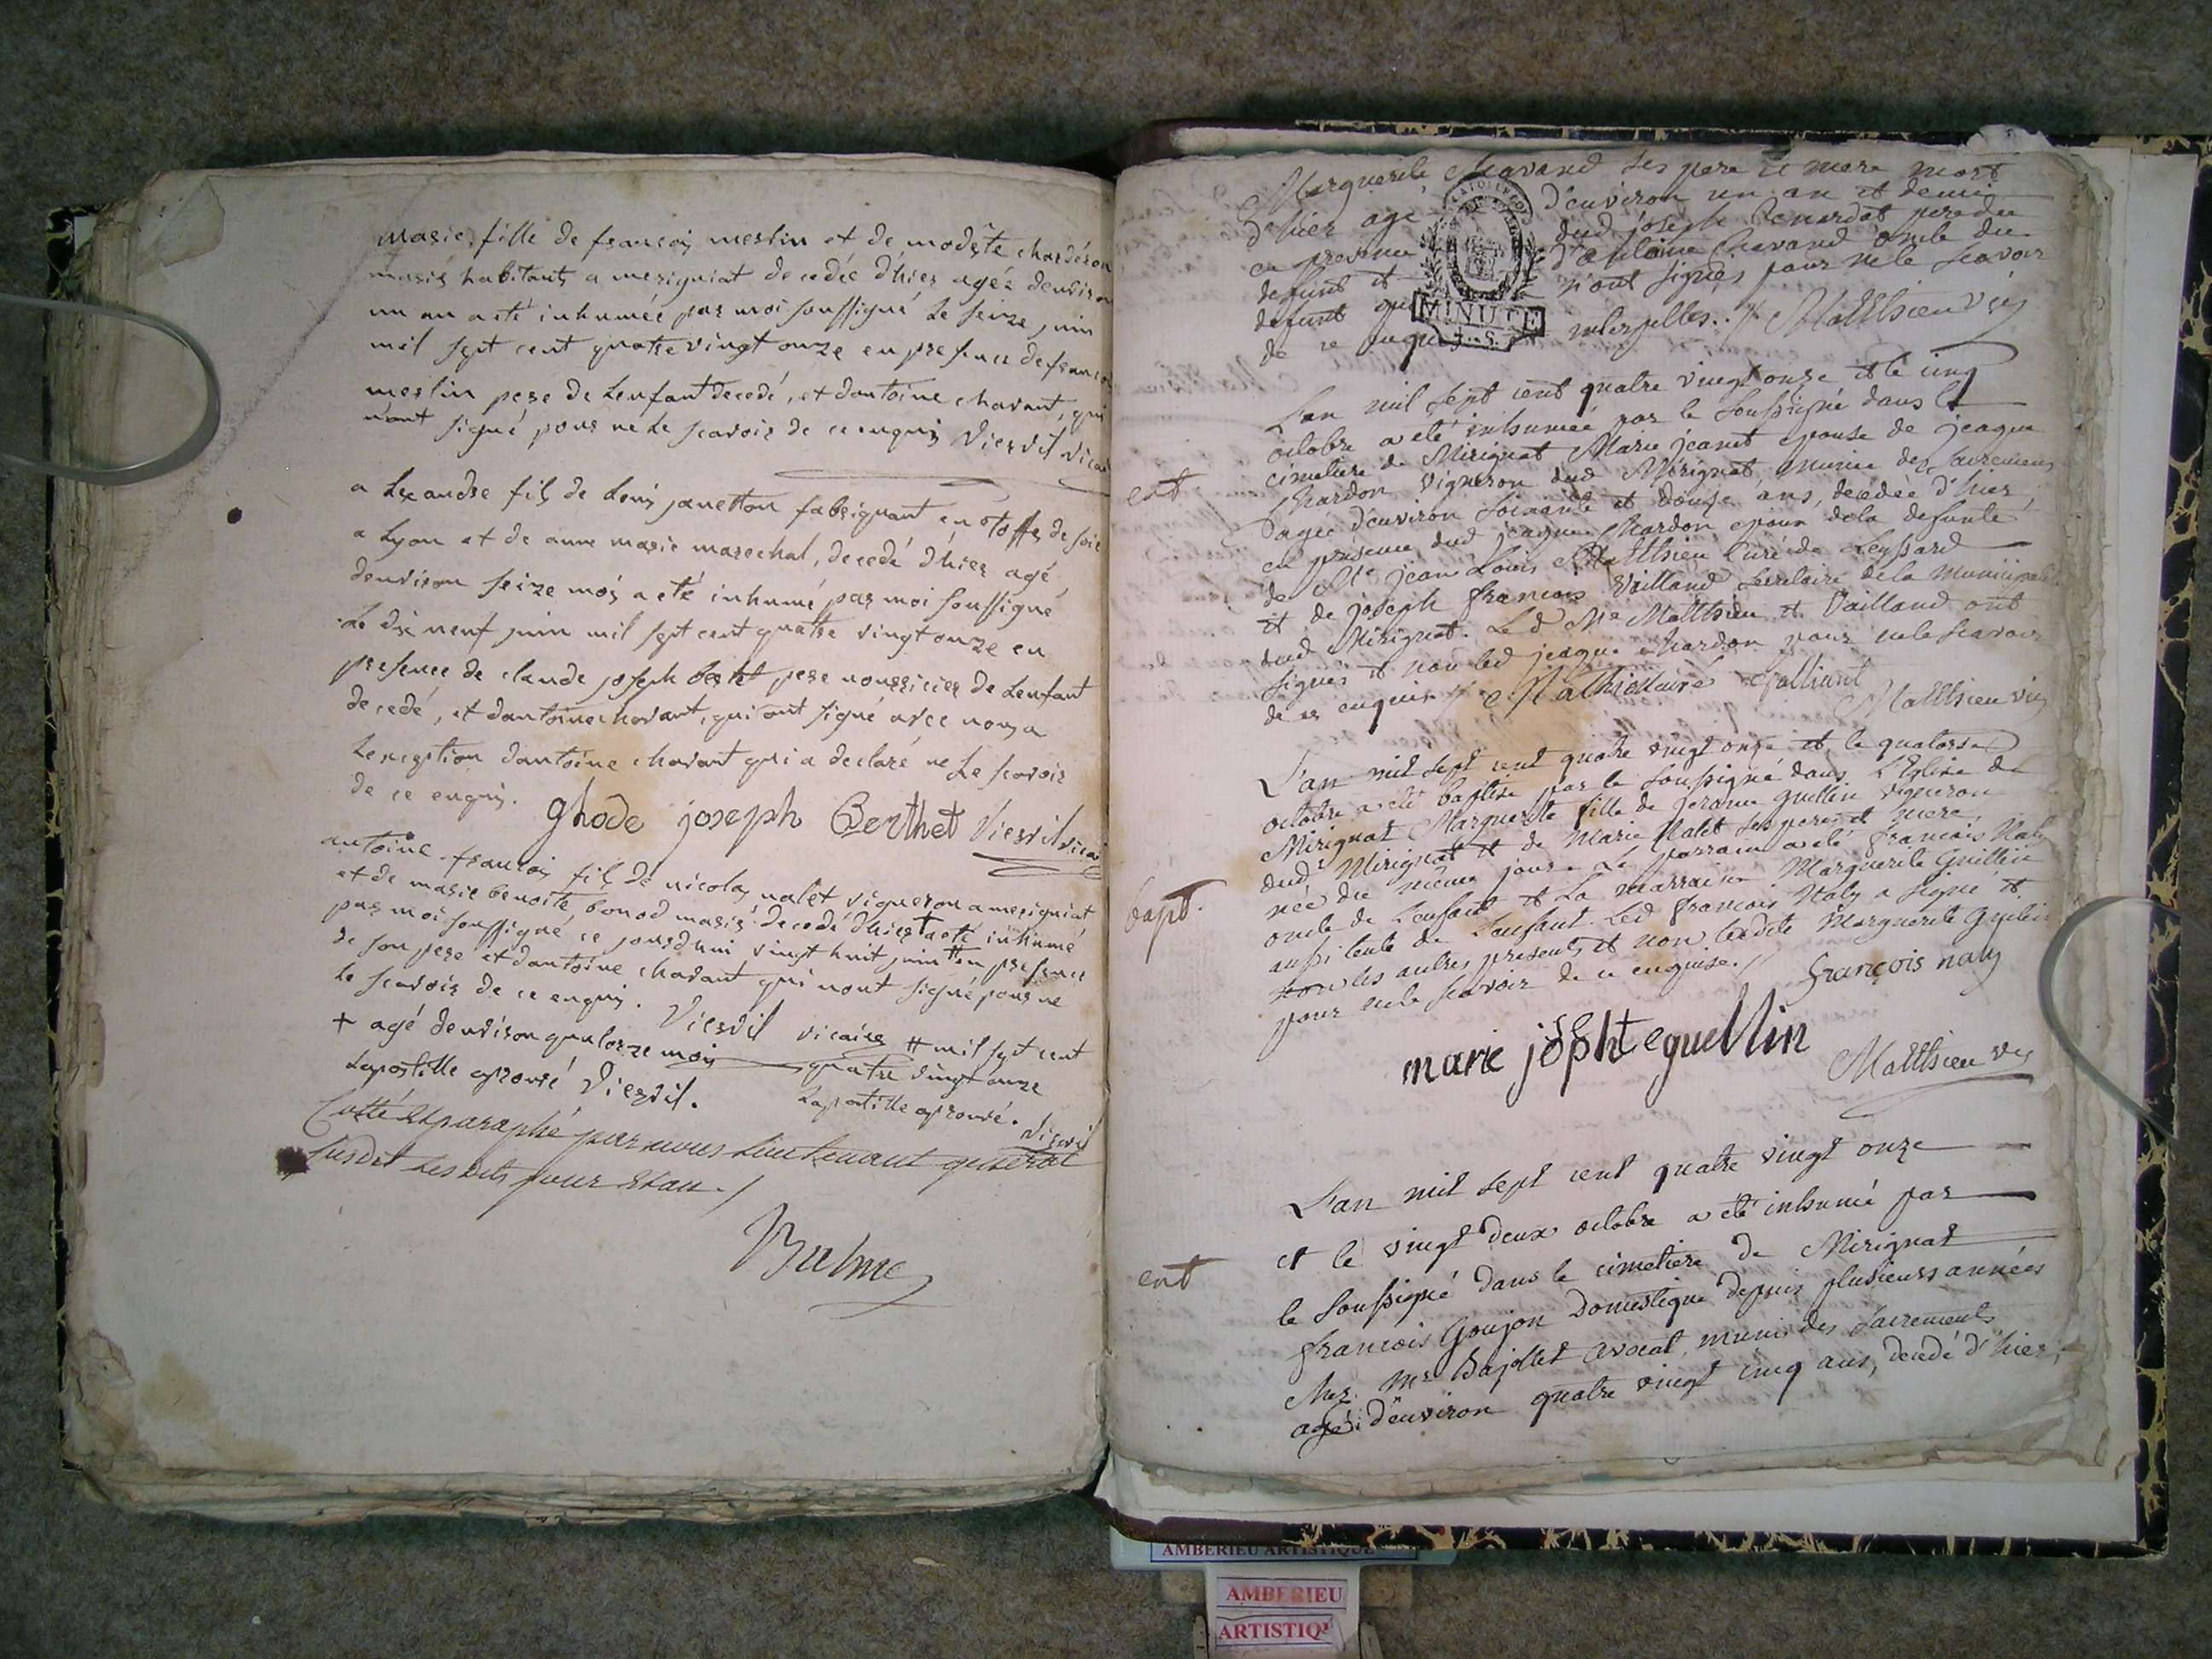 marie, fille de françois meslin et de modeste charderon
mariés habitants a merigniat decedée d'hier agée denviron
un an a eté inhumée par moi soussigné le seize juin
mil sept cent quatre vingt onze en presence de françois
meslin pere de lenfant decedé, et dantoine chavant, qui
n'ont signé pour ne le scavoir de ce enquis Viervil vicai
alexandre fils de Louis janetton fabriquant en étoffes de soie
a Lyon et de anne marie marechal, decedé d'hier agé
denviron seize mois a eté inhumé par moi soussigné
Le dix neuf juin mil sept cent quatre vingt onze en
presence de claude joseph bertet pere nourricier de lenfant
decedé, et dantoine chavant, qui ont signé avec nous a
Lexception dantoine chavant qui a declaré ne le scavoir
de ce enquis. ghode joseph Berthet Viervil vicai
antoine françois fils de nicolas nalet vigneron a merigniat
et de marie benoite bonod mariés decedé d'hier + a eté inhumé
par moi soussigné ce jourdhui vingt huit juin # en presence
de son pere et dantoine chavant qui nont signé pour ne
le scavoir de ce enquis. Viervil vicaire # mil sept cent
+ agé denviron quatorze mois quatre vingt onze
Lapostille aprouvé Viervil. Lapostille aprouvé. Viervil
Cotté et paraphé par nous Lieutenant general
susdit
Marguerite Chavand ses pere et mere mort
d'hier agé d'environ un an et demi
en presence dud joseph pere du
defunt et d'antoine Chavand oncle du
defunt qui n'ont signés pour ne le scavoir
de ce enquis interpelles. Matthieu vic
MINUTE
L'an mil sept cent quatre vingt onze et le cinq
octobre a eté inhumée par le soussigné dans le
ent
cimetiere de Mérignat Marie jeanet epouse de jeaque
Chardon vigneron dud Mérignat munie des sacremens
agée d'environ soixante et douze ans, decédée d'hier,
en présence dud jeaque Chardon epoux de la defunte
de Me jean Louis Matthieu Curé de Leyssard
et de joseph françois Vailland secretaire de la municipal
dud Mérignat. Le d Me Matthieu et Vailland ont
signés et non led jeaque Chardon pour ne le scavoir
de ce enquis
Matthieu vic
L'an mil sept cent quatre vingt onze et le quatorse
octobre a eté baptisé par le soussigné dans L'Eglise de
Mérignat Marguerite fille de jerome guillin vigneron
dud Mérignat et de Marie Nalet ses pere et mere
bapt.
née du même jour. Le parrain a eté françois Naly
oncle de L'enfant et La marraine Marguerite Guillin
aussi tente de L'enfant. Led françois Naly a signé et
non les autres presents et non ladite Marguerite guilin
pour ne le scavoir de ce enquise.
françois naly
marie jospht eguellin
Matthieu vic
L'an mil sept cent quatre vingt onze
et le vingt deux octobre a eté inhumé par
le soussigné dans le cimetiere de Mérignat
ent
françois Goujon Domestique depuis plusieurs années
chez Mr Bajollet avocat, muni des sacrements
agé d'environ quatre vingt cinq ans, decedé d'hier,
AMBERIEU ARTISTIQUE
AMBERIEU
ARTISTIQ